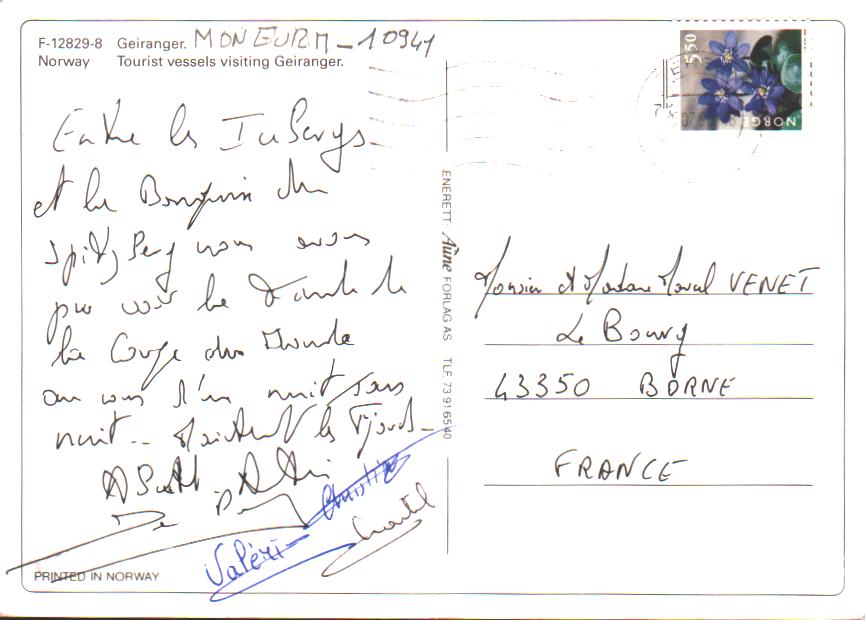 F-12829-8 Geiranger. MONEURM - 10941
Norway Tourist vessels visiting Geiranger.
Entre les Icebergs
et la Banquise du
Spitzberg nous avons
pu voir la Finale de
la Coupe du Monde
au cours d'une nuit sans
nuit .. Maintenant les Fjords -
A Bientôt
Valérie
Christine
Chantal
PRINTED IN NORWAY
ENERETT: Aune FORLAG AS TLF 73 91 65 40
5.50
NORGE
Monsieur et Madame Marcel VENET
Le Bourg
43350 BORNE
FRANCE